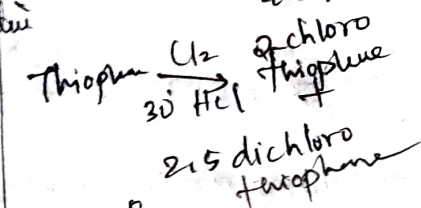 Thiophen Cl2 2-chloro
30° HCl thiophene
+
2,5 dichloro
thiophene